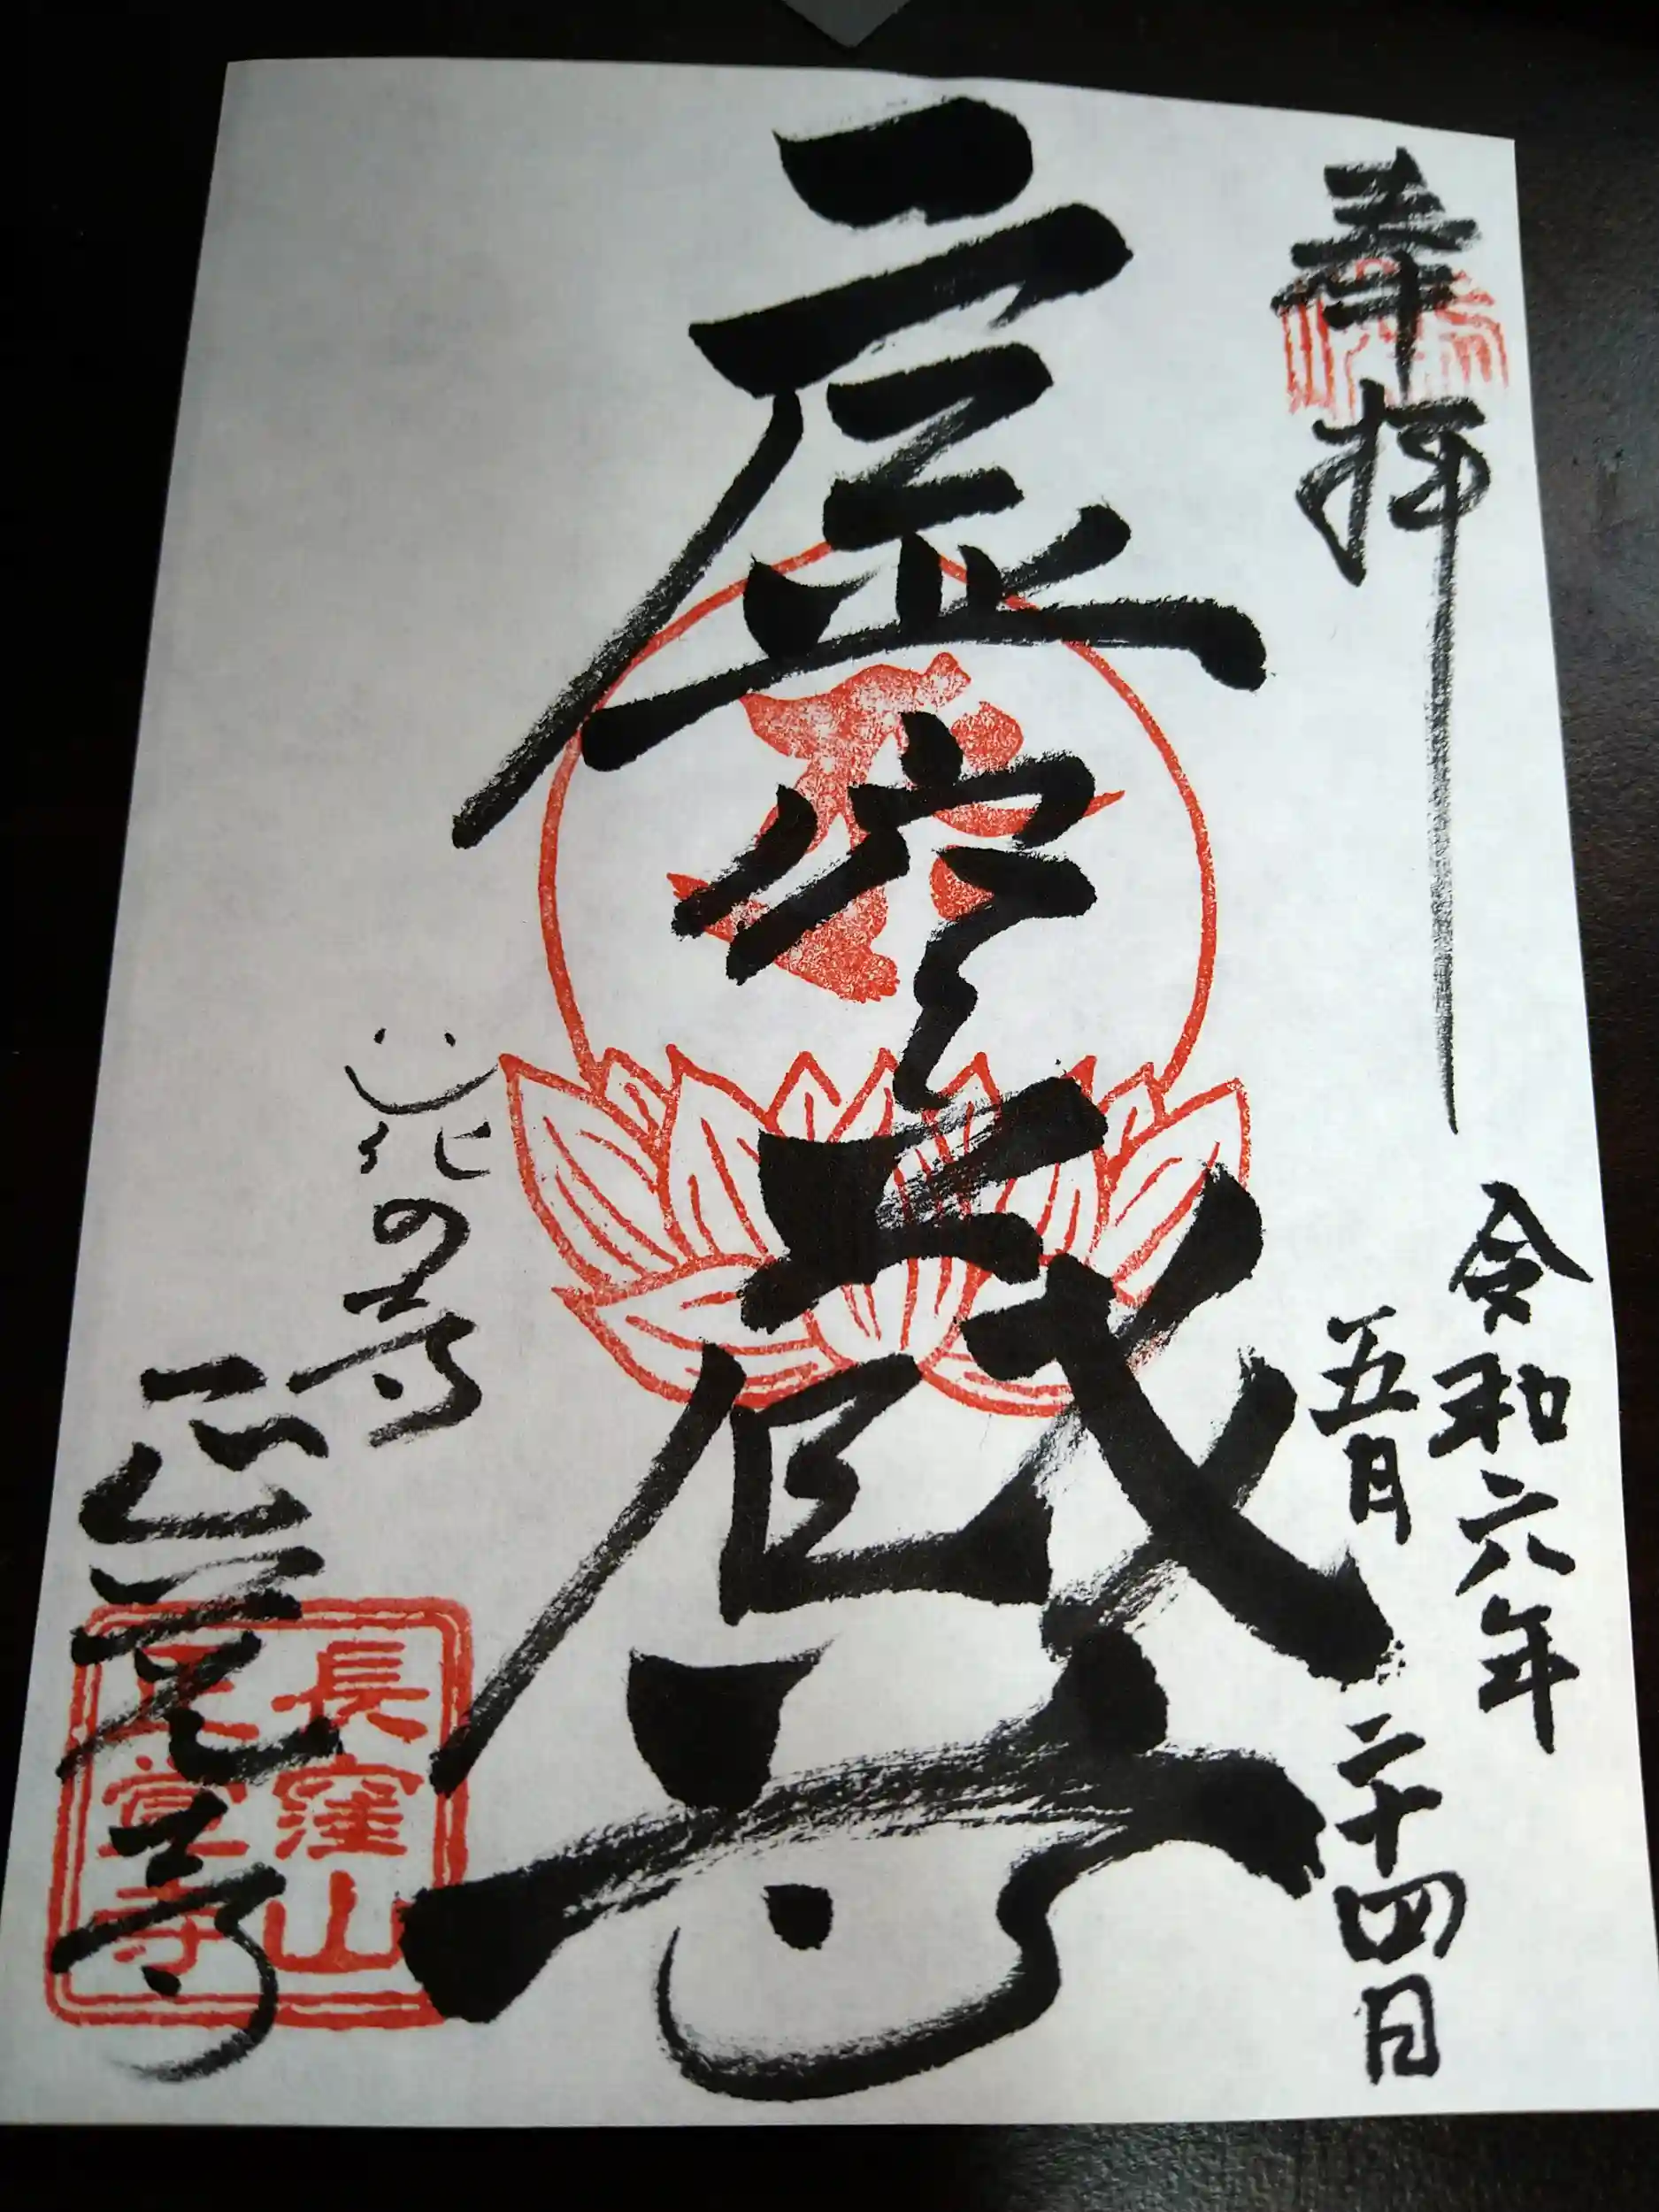 奉拝
令和六年
五月二十四日
虚空蔵尊
花の寺
正覚寺
長窪山
正覚寺